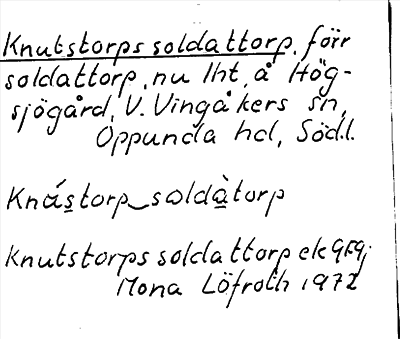 Knutstorps soldattorp, förr
soldattorp, nu lht, å Hög-
sjögård, V. Vingåkers sn,
Oppunda hd, Södl.
Knástorp soldàtorp
Knutstorps soldattorp ek
Mona Löfroth 1972